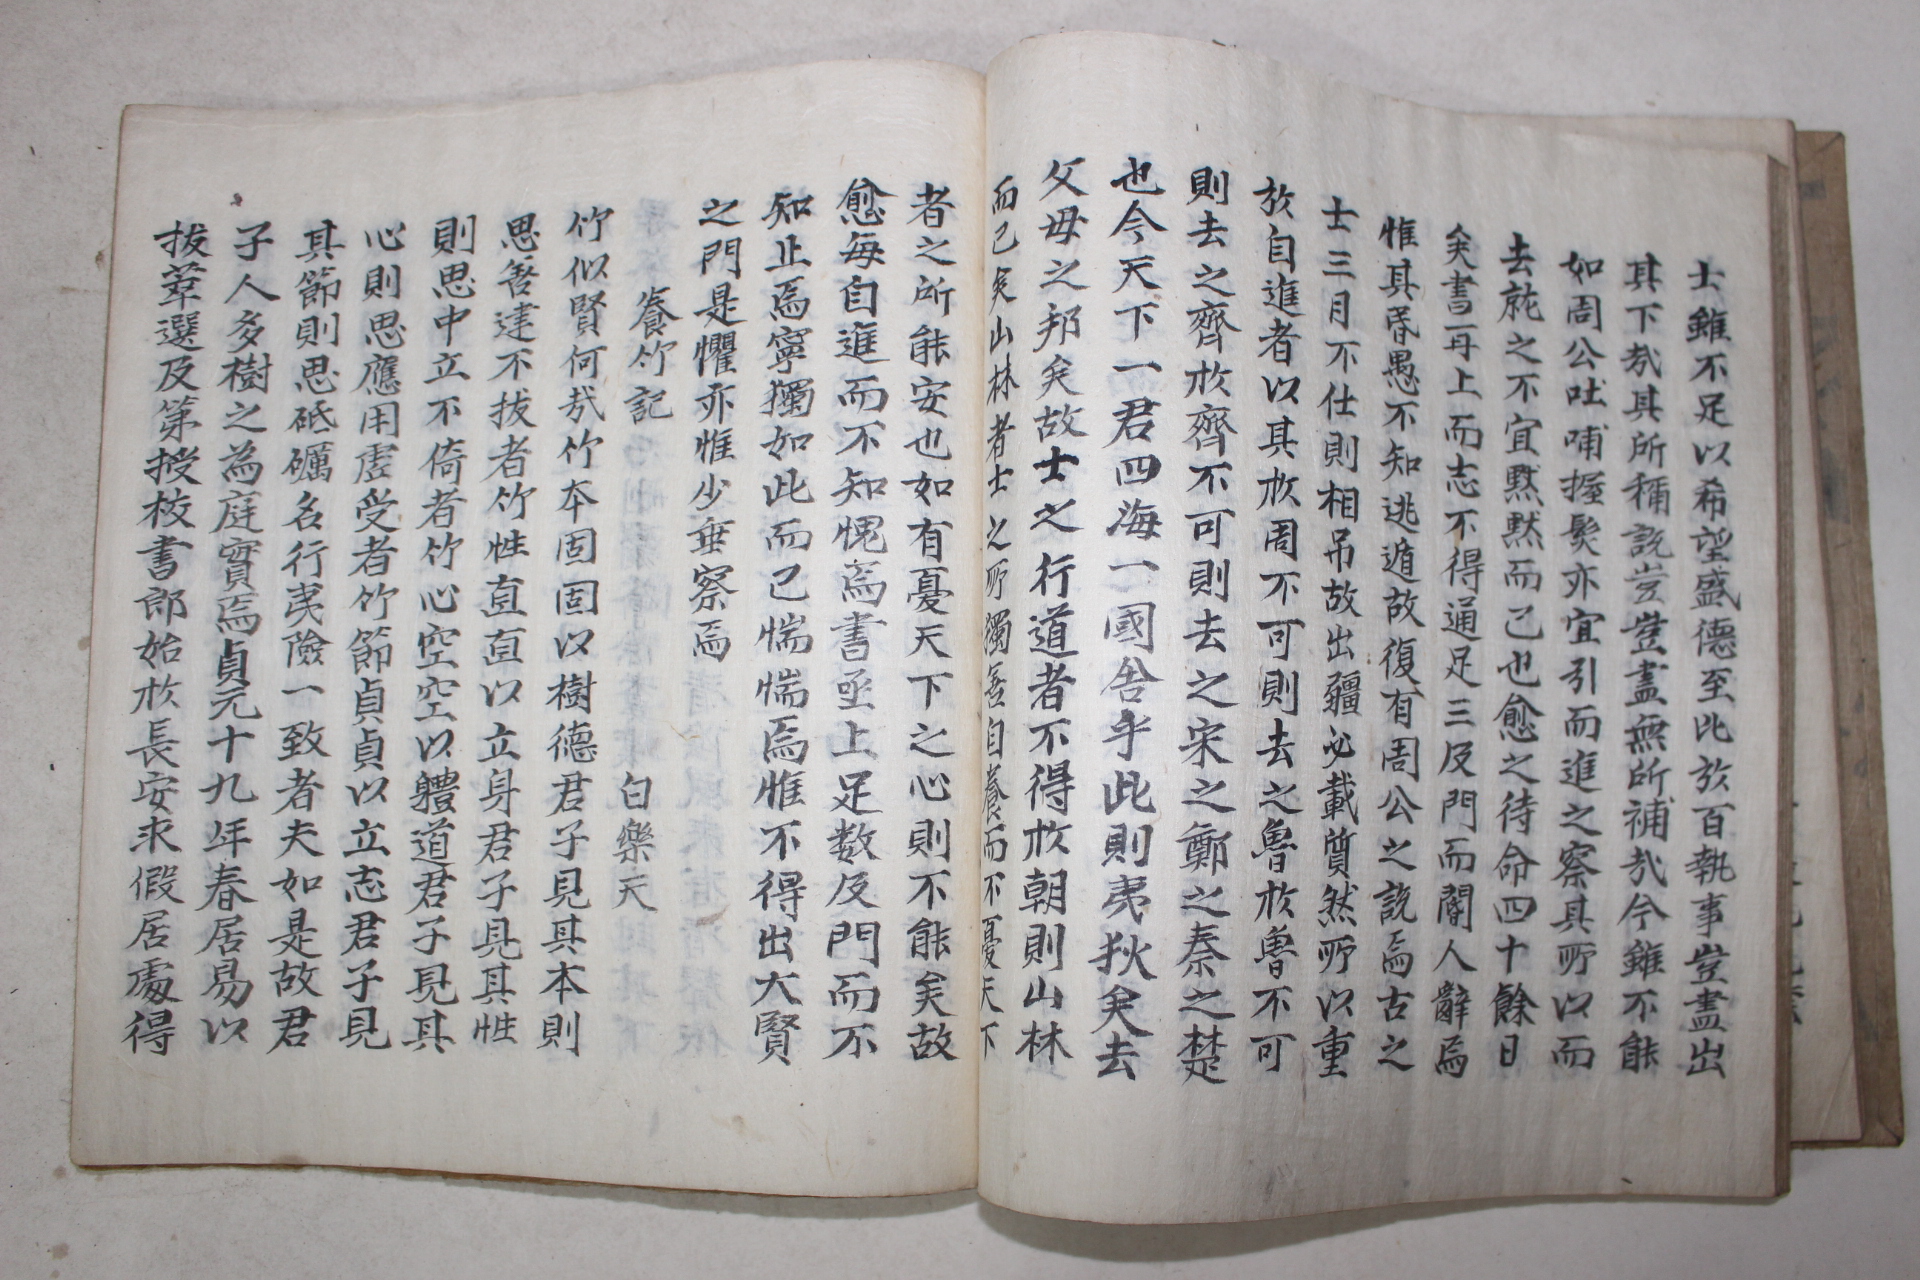 士雖不足以希望盛德至比於百執事豈盡出
其下哉其所稱說豈豈盡無所補哉今雖不能
如周公吐哺握髮亦宜引而進之察其所以而
去就之不宜默默而已也愈之待命四十餘日
矣書再上而志不得通足三及門而閽人辭焉
惟其昏愚不知逃遁故復有周公之說焉古之
士三月不仕則相吊故出疆必載質然所以重
於自進者以其於周不可則去之魯於魯不可
則去之齊於齊不可則去之宋之鄭之秦之楚
也今天下一君四海一國舍乎此則夷狄矣去
父母之邦矣故士之行道者不得於朝則山林
而已矣山林者士之所獨善自養而不憂天下
者之所能安也如有憂天下之心則不能矣故
愈每自進而不知愧焉書亟上足數及門而不
知止焉寧獨如此而已惴惴焉惟不得出大賢
之門是懼亦惟少垂察焉
養竹記　白樂天
竹似賢何哉竹本固固以樹德君子見其本則
思善建不拔者竹性直直以立身君子見其性
則思中立不倚者竹心空空以軆道君子見其
心則思應用虛受者竹節貞貞以立志君子見
其節則思砥礪名行夷險一致者夫如是故君
子人多樹之為庭實焉貞元十九年春居易以
拔萃選及第授校書郎始於長安求假居處得